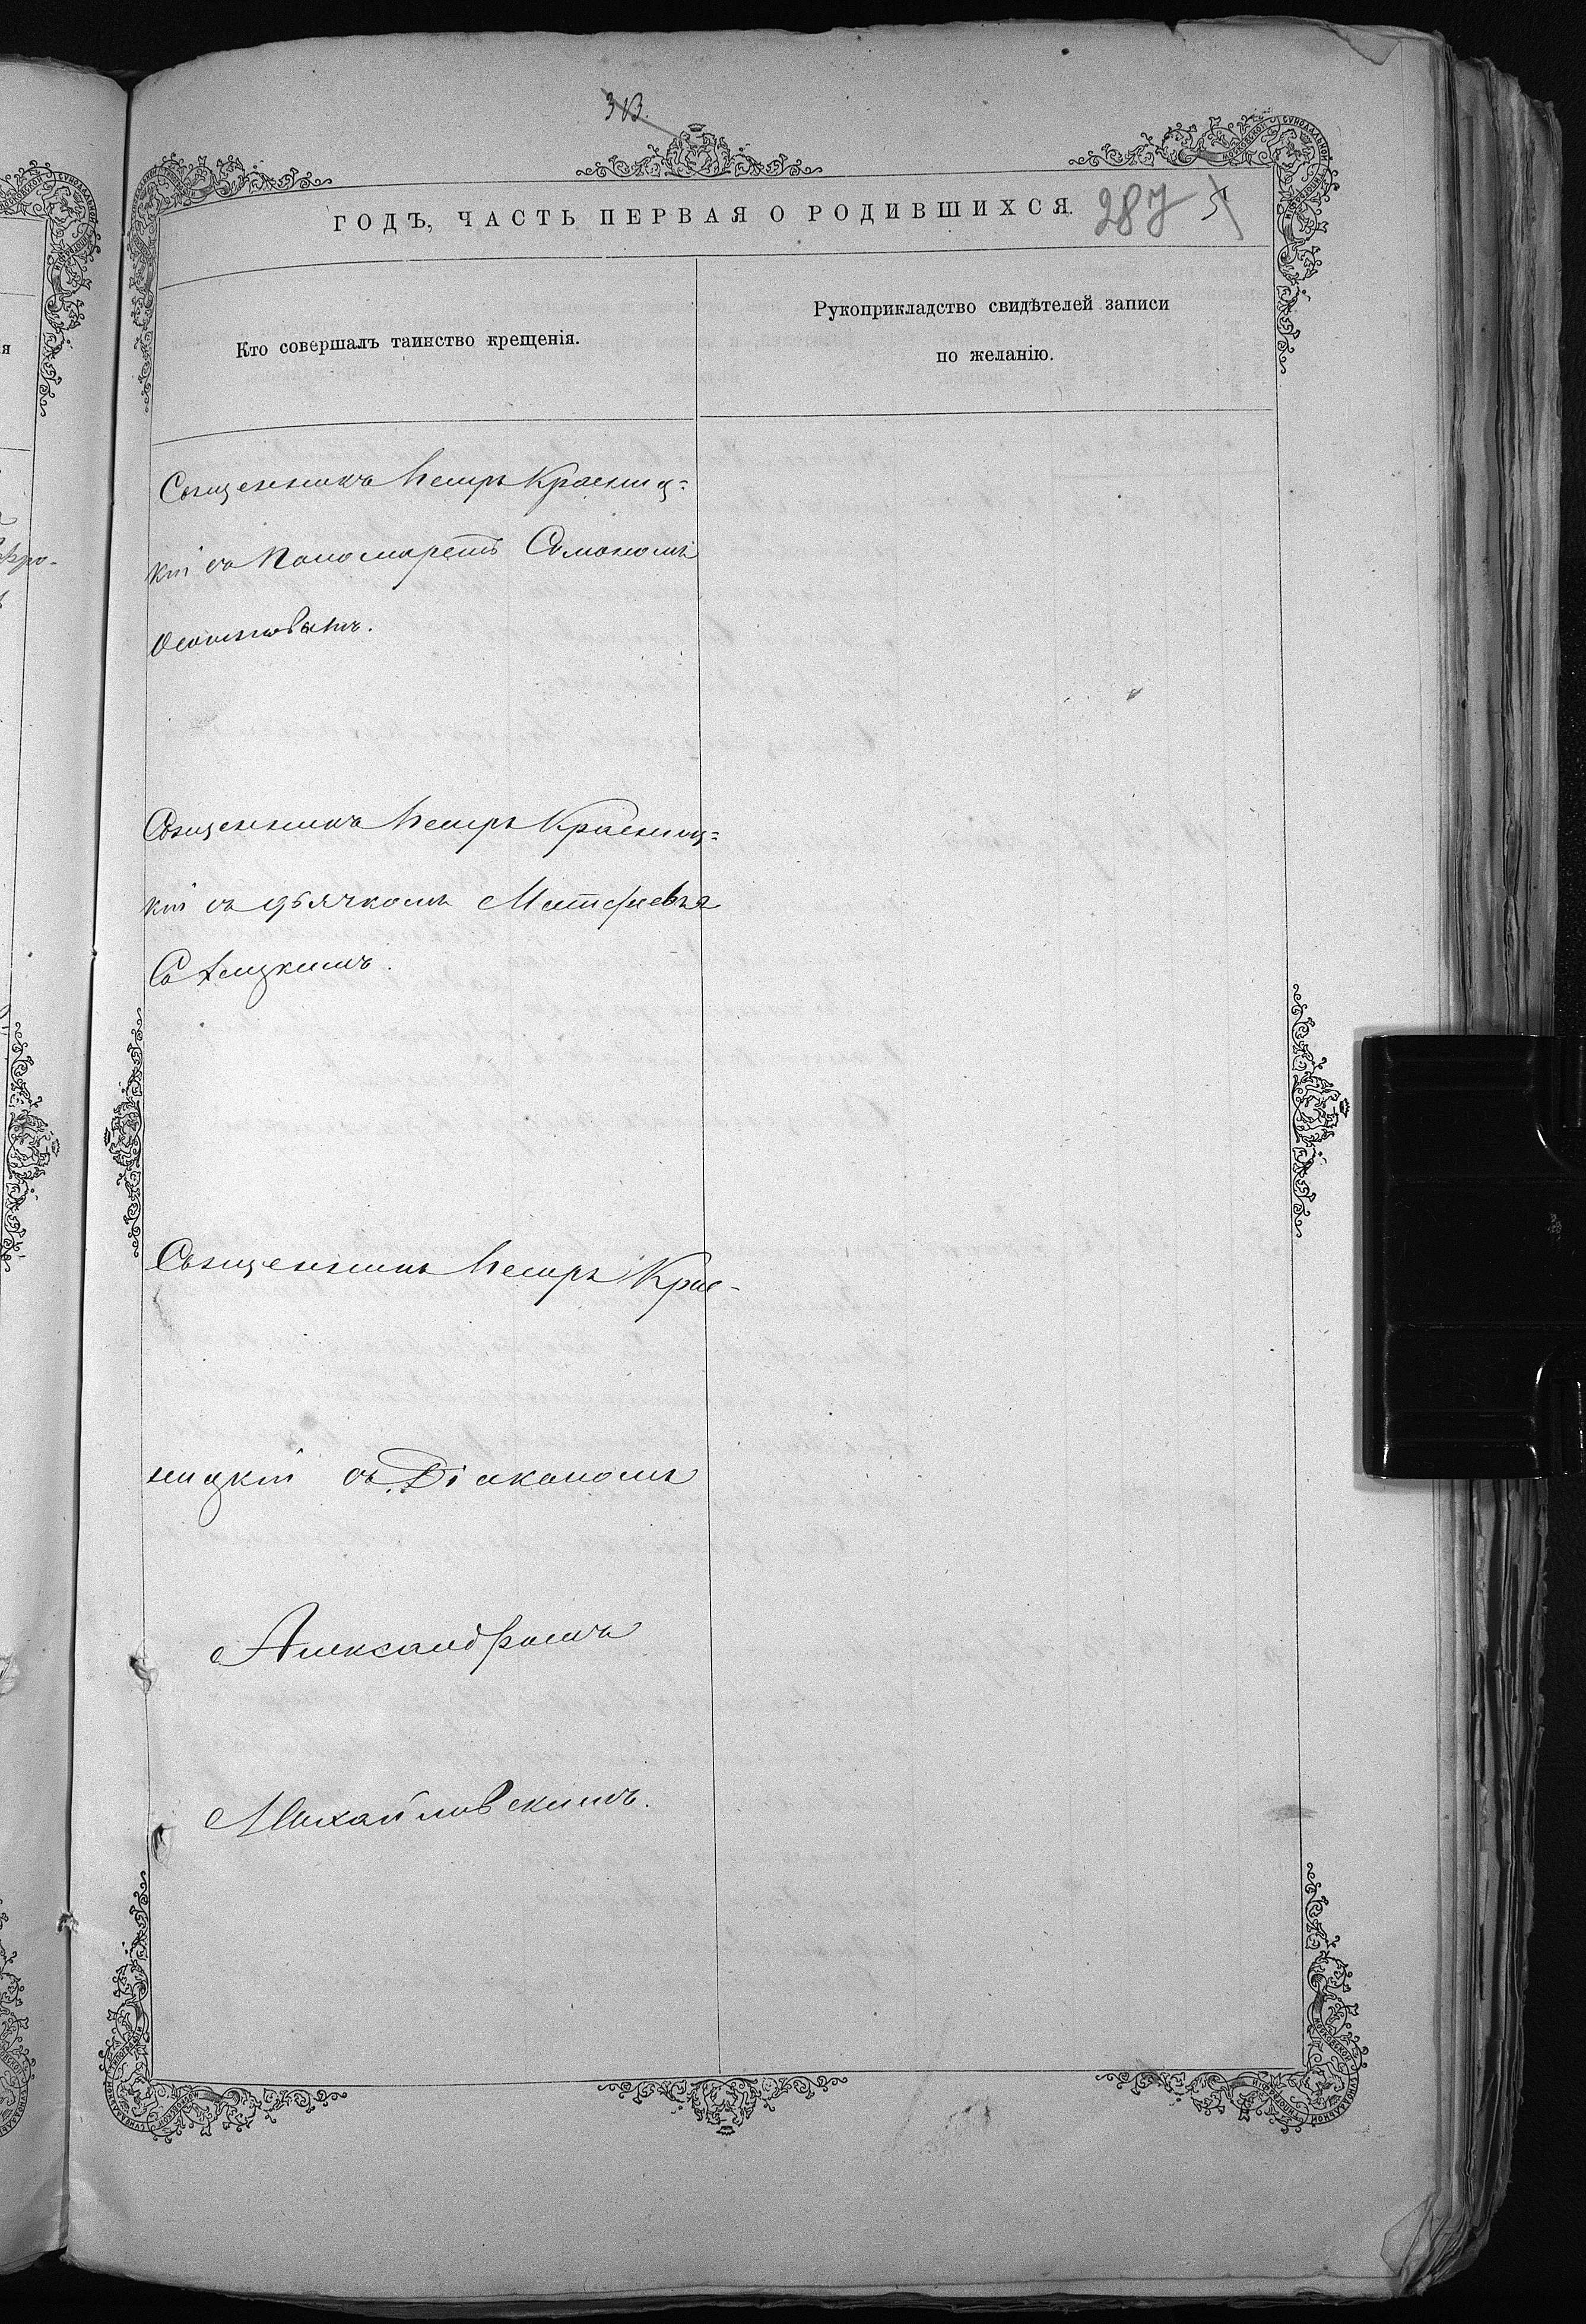 313.
ГОДЪ, ЧАСТЬ ПЕРВАЯ О РОДИВШИХСЯ.
287
Кто совершалъ таинство крещенія.
Рукоприкладство свидѣтелей записи
по желанію.
Священникъ Петръ Красниц=
кій съ Пономаремъ Симономъ
Осиповымъ.
Священникъ Петръ Красниц=
кій съ дьячкомъ
Священникъ Петръ Крас-
ницкій съ Діакономъ
Александромъ
Михайловскимъ.